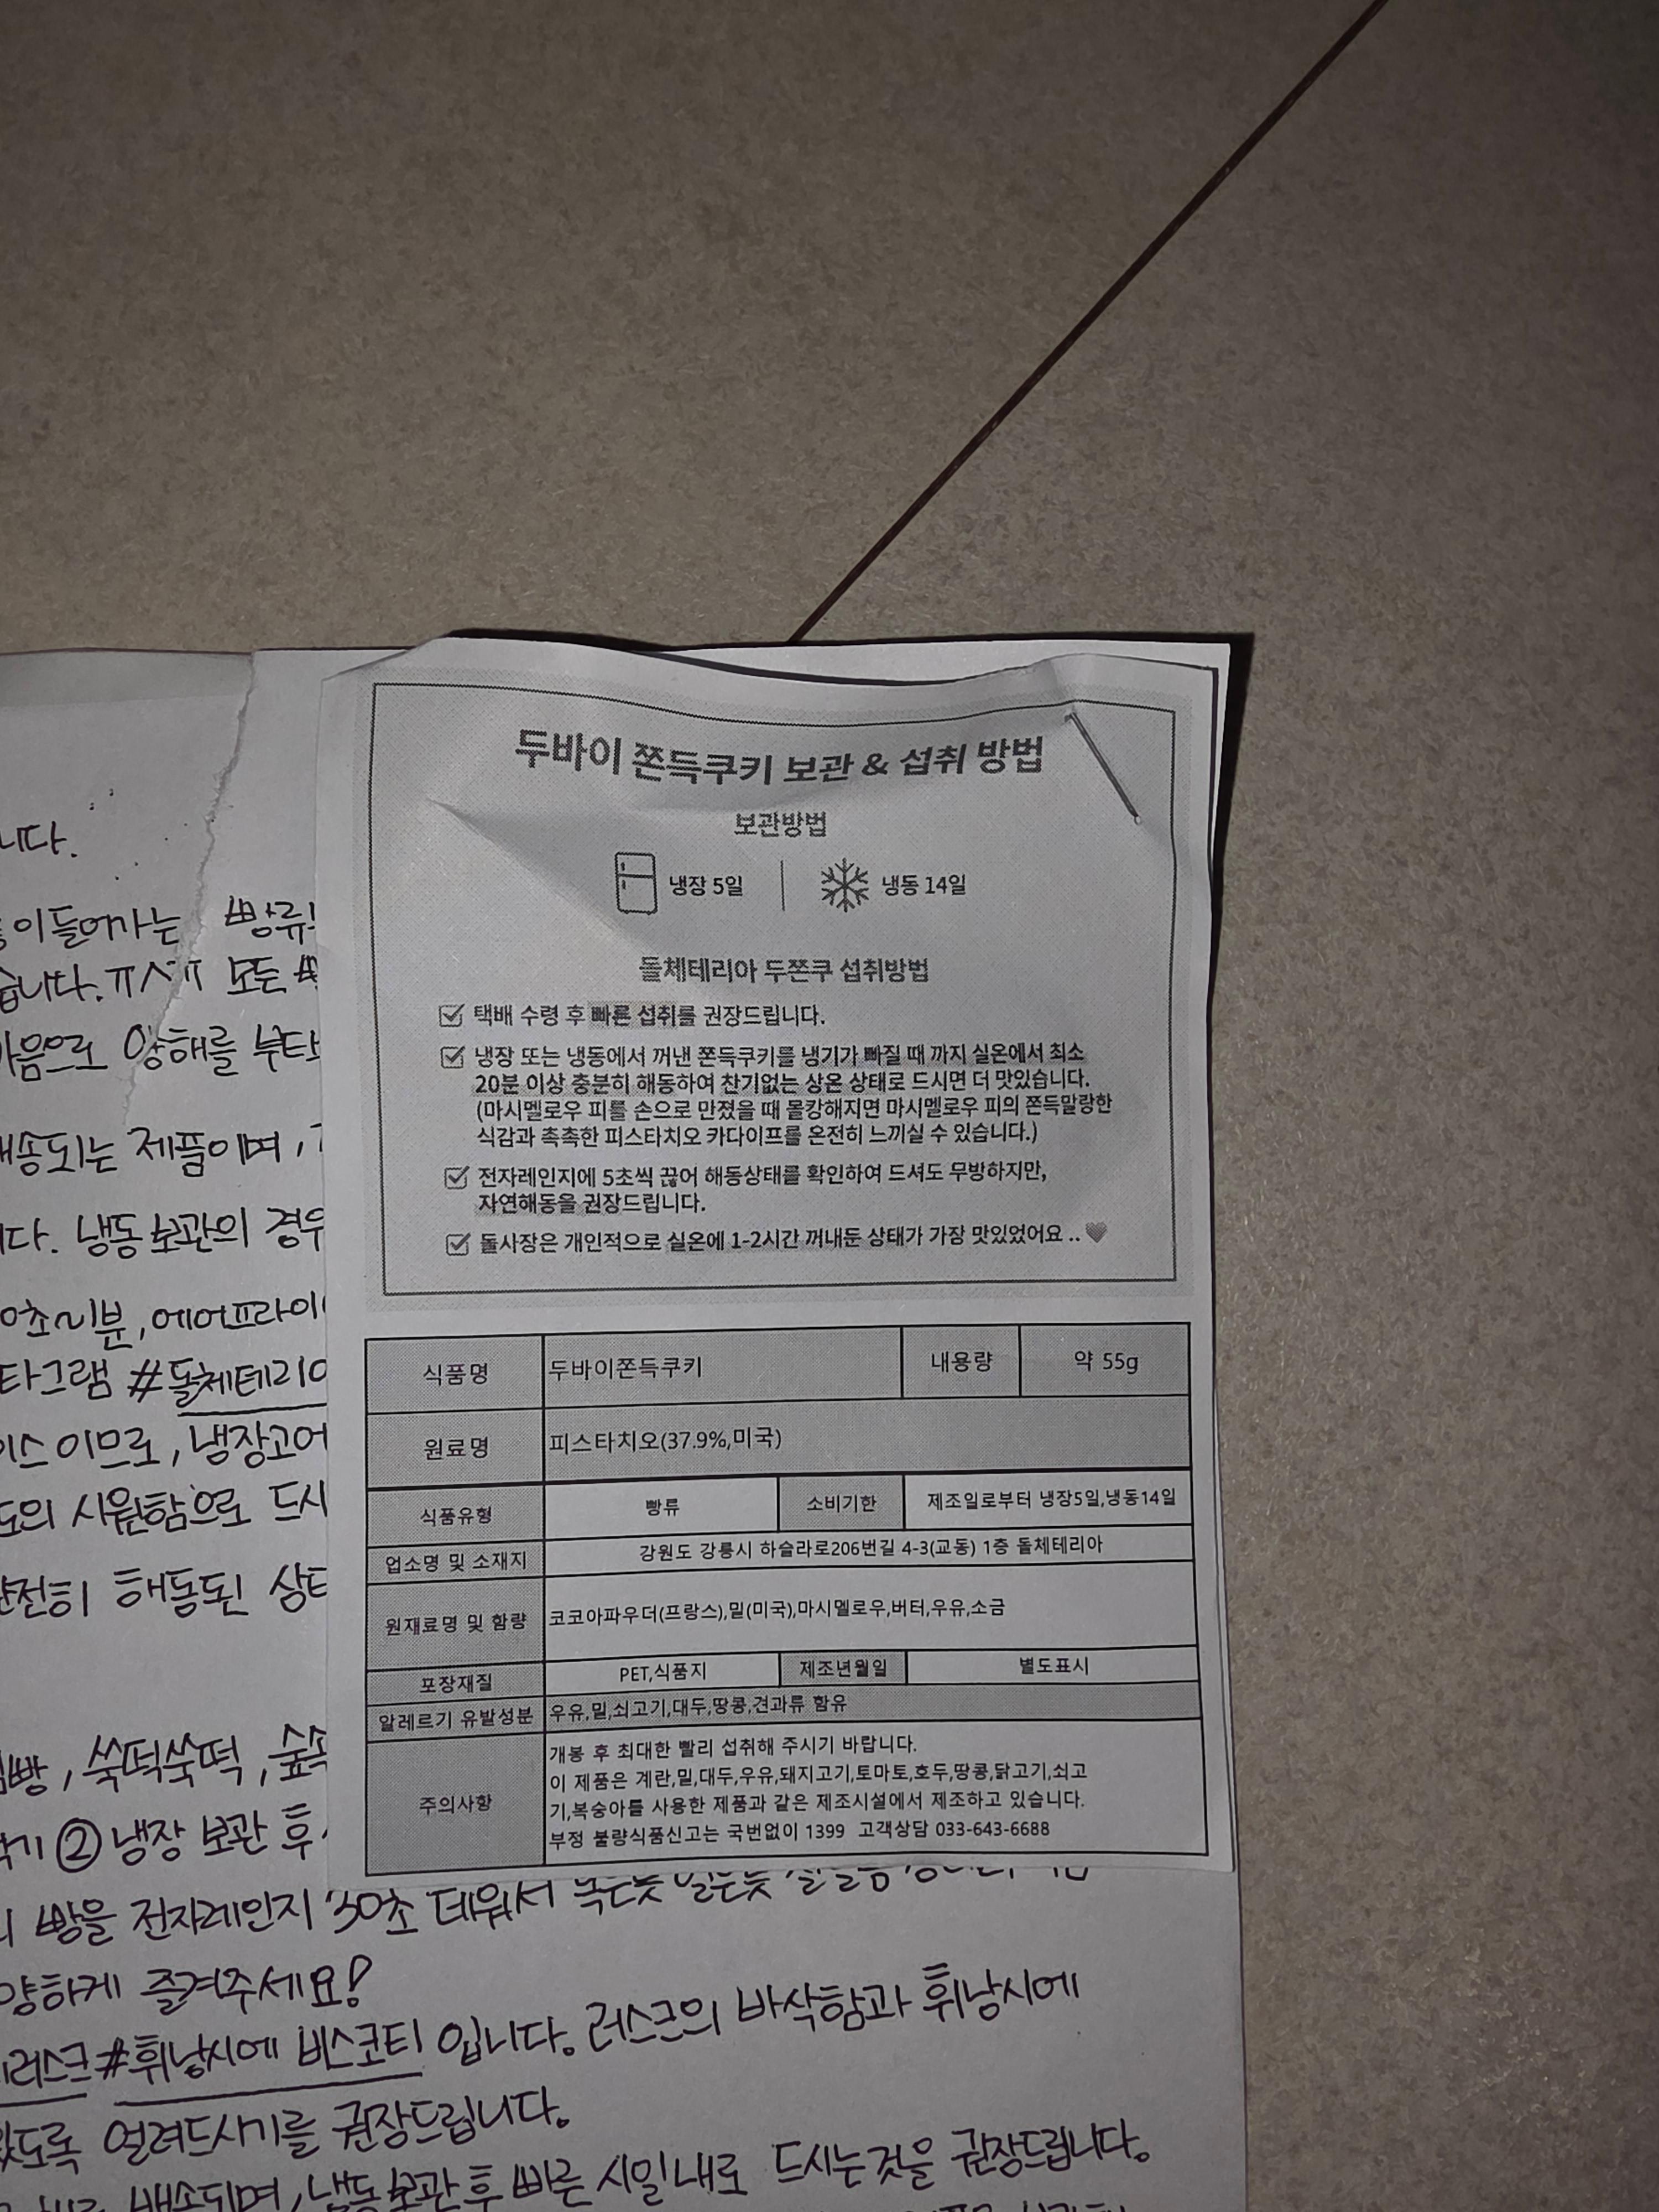 두바이 쫀득쿠키 보관 & 섭취 방법
보관방법
냉장 5일 | 냉동 14일
돌체테리아 두쫀쿠 섭취방법
택배 수령 후 빠른 섭취를 권장드립니다.
냉장 또는 냉동에서 꺼낸 쫀득쿠키를 냉기가 빠질 때 까지 실온에서 최소
20분 이상 충분히 해동하여 찬기없는 상온 상태로 드시면 더 맛있습니다.
(마시멜로우 피를 손으로 만졌을 때 몰캉해지면 마시멜로우 피의 쫀득말랑한
식감과 촉촉한 피스타치오 카다이프를 온전히 느끼실 수 있습니다.)
전자레인지에 5초씩 끊어 해동상태를 확인하여 드셔도 무방하지만,
자연해동을 권장드립니다.
돌사장은 개인적으로 실온에 1-2시간 꺼내둔 상태가 가장 맛있었어요 .. ♥
식품명 두바이쫀득쿠키 내용량 약 55g
원료명 피스타치오(37.9%,미국)
식품유형 빵류 소비기한 제조일로부터 냉장5일,냉동14일
업소명 및 소재지 강원도 강릉시 하슬라로206번길 4-3(교동) 1층 돌체테리아
원재료명 및 함량 코코아파우더(프랑스),밀(미국),마시멜로우,버터,우유,소금
포장재질 PET,식품지 제조년월일 별도표시
알레르기 유발성분 우유,밀,쇠고기,대두,땅콩,견과류 함유
주의사항 개봉 후 최대한 빨리 섭취해 주시기 바랍니다.
이 제품은 계란,밀,대두,우유,돼지고기,토마토,호두,땅콩,닭고기,쇠고
기,복숭아를 사용한 제품과 같은 제조시설에서 제조하고 있습니다.
부정 불량식품신고는 국번없이 1399 고객상담 033-643-6688
니다.
이 들어가는 빵류
습니다. ㅠㅅㅠ 모든
마음으로 양해를 부탁
배송되는 제품이며,
니다. 냉동보관의 경우
0초~1분, 에어프라이
타그램 #돌체테리아
이스 이므로, 냉장고에
도의 시원함으로 드시
완전히 해동된 상태
빵, 쑥떡쑥떡,
② 냉장 보관 후
빵을 전자레인지 30초 데워서 녹은듯
양하게 즐겨주세요!
러스크 #휘낭시에 비스코티 입니다. 러스크의 바삭함과 휘낭시에
있도록 얼려드시기를 권장드립니다.
배송되며, 냉동보관 후 빠른 시일 내로 드시는것을 권장드립니다.